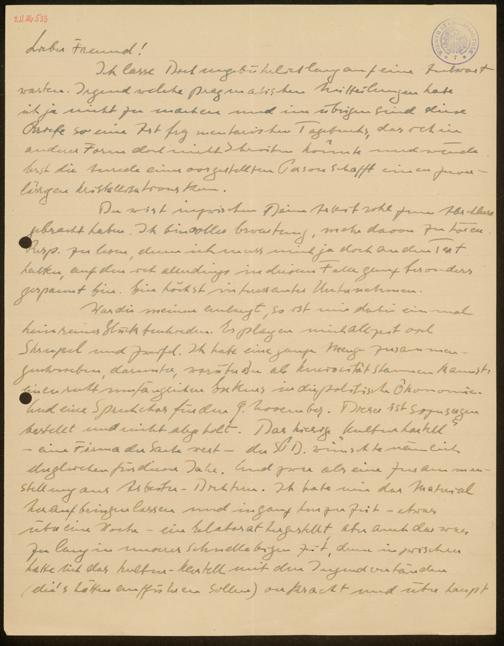 Lieber Freund!
Ich lasse Dich ungebührlich lang auf eine Antwort
warten. Irgend welche pragmatischen Mitteilungen habe
ich ja nicht zu machen und im übrigen sind diese
Briefe so eine Art fragmentarischen Tagebuchs, das ich in
anderer Form doch nicht schreiben könnte und
erst die einer vorgestellten Person schafft einen
Du wirst inzwischen Deine Arbeit wohl zum Abschluss
gebracht haben. Ich bin voller Erwartung, mehr davon zu hören
resp. zu lesen, denn ich muss mich ja doch an den Text
halten, auf den ich allerdings in diesem Falle ganz besonders
gespannt bin. Ein höchst interessantes Unternehmen.
Was die meinen anlangt, so ist mir dabei ein mal
kein reines Glück beschieden. Es plagen mich allzeit viel
Skrupel und Zweifel. Ich habe eine ganze Menge zusammen-
geschrieben, darunter,
einen recht umfänglichen Exkurs in die politische Ökonomie.
Und eine Sprechchor für den 9. November. Dieser ist sozusagen
bestellt und nicht abgeholt. Das hiesige Kulturkartell
– eine Firma der Sache nach – der S.P.D. wünschte nämlich
dergleichen für dieses Jahr. Und zwar als eine Zusammen-
stellung aus Arbeiter-Dichtern. Ich habe mir das Material
heraufbringen lassen und in ganz kurzer Zeit – etwas
über eine Woche – ein Elaborat hergestellt aber auch das war
zu lang in unserer schnellebigen Zeit, denn inzwischen
hatte sich das Kultur-Kartell mit den Jugendverbänden
(die's hätten aufführen sollen) verkracht und überhaupt